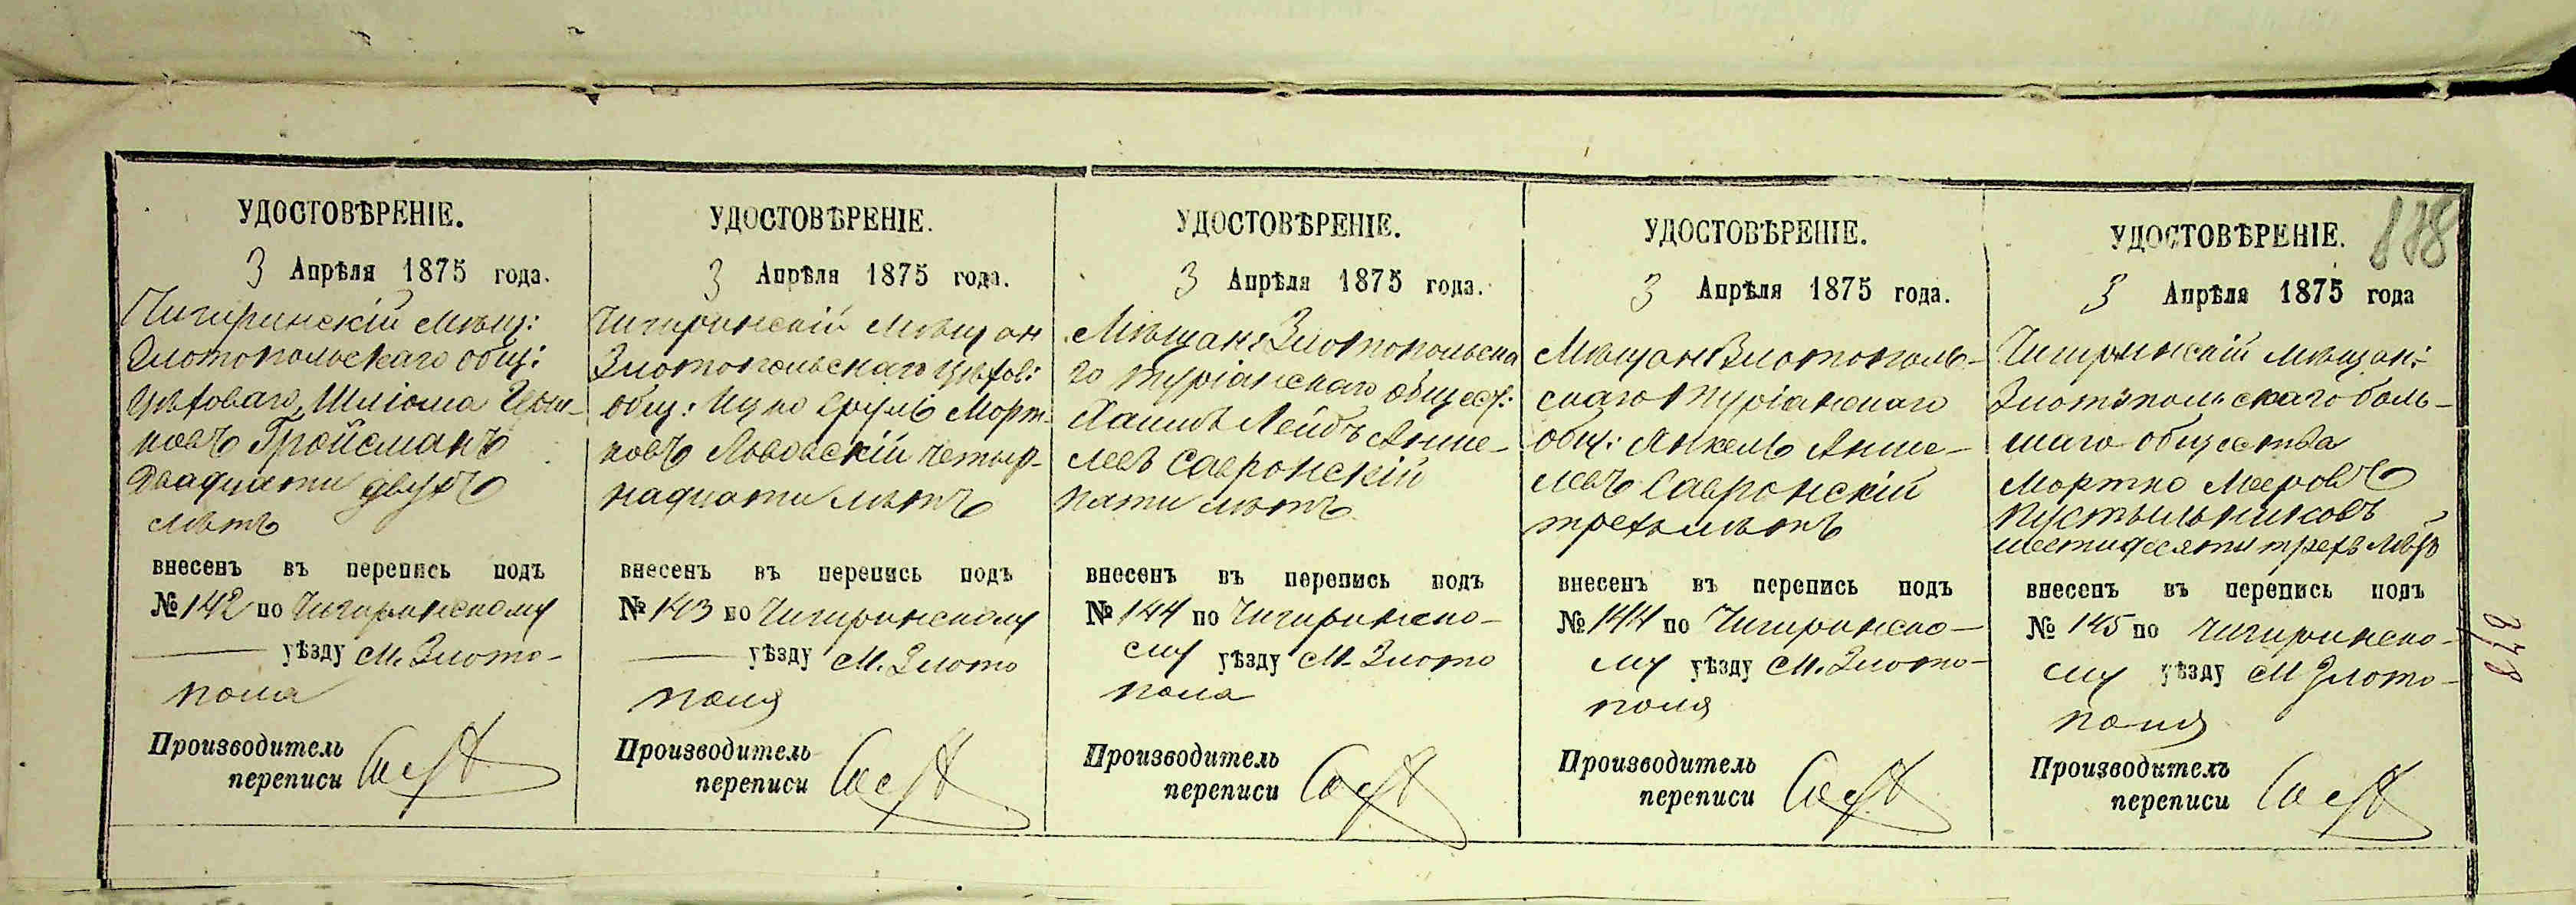 УДОСТОВѢРЕНІЕ.
3 Апрѣля 1875 года.
Чигиринскій мѣщ:
Златопольскаго общ:
Цѣховаго, Шліома
новъ Гройсманъ
двадцати двухъ
лѣтъ
внесенъ въ перепись подъ
№ 142 по Чигиринскому
уѣзду М. Злато-
поля
Производитель
переписи
УДОСТОВѢРЕНІЕ.
3 Апрѣля 1875 года.
Чигиринскій мѣщан
Златопольскаго Цѣхов:
общ: Ицко Сруль Морт-
ковъ четыр-
надцати лѣтъ
внесенъ въ перепись подъ
№ 143 по Чигиринскому
уѣзду М. Злато
поля
Производитель
переписи
УДОСТОВѢРЕНІЕ.
3 Апрѣля 1875 года.
Мѣщан: Златопольска
го Туріанскаго общест:
Хаимъ Лейбъ Анше-
леевъ Савронскій
пяти лѣтъ
внесенъ въ перепись подъ
№ 144 по Чигиринско-
му уѣзду М. Злато
поля
Производитель
переписи
УДОСТОВѢРЕНІЕ.
3 Апрѣля 1875 года.
Мѣщан Златополь-
скаго Туріанскаго
общ: Янкель Анше-
левъ Савронскій
трехъ лѣтъ
внесенъ въ перепись подъ
№ 144 по Чигиринско-
му уѣзду М. Злато-
поля
Производитель
переписи
УДОСТОВѢРЕНІЕ.
3 Апрѣля 1875 года
Чигиринскій мѣщан:
Златопольскаго боль-
шаго общества
Мортко Мееровъ
Пустыльниковъ
шестидесяти трехъ лѣтъ
внесенъ въ перепись подъ
№ 145 по Чигиринско-
му уѣзду М Злато-
поля
Производитель
переписи